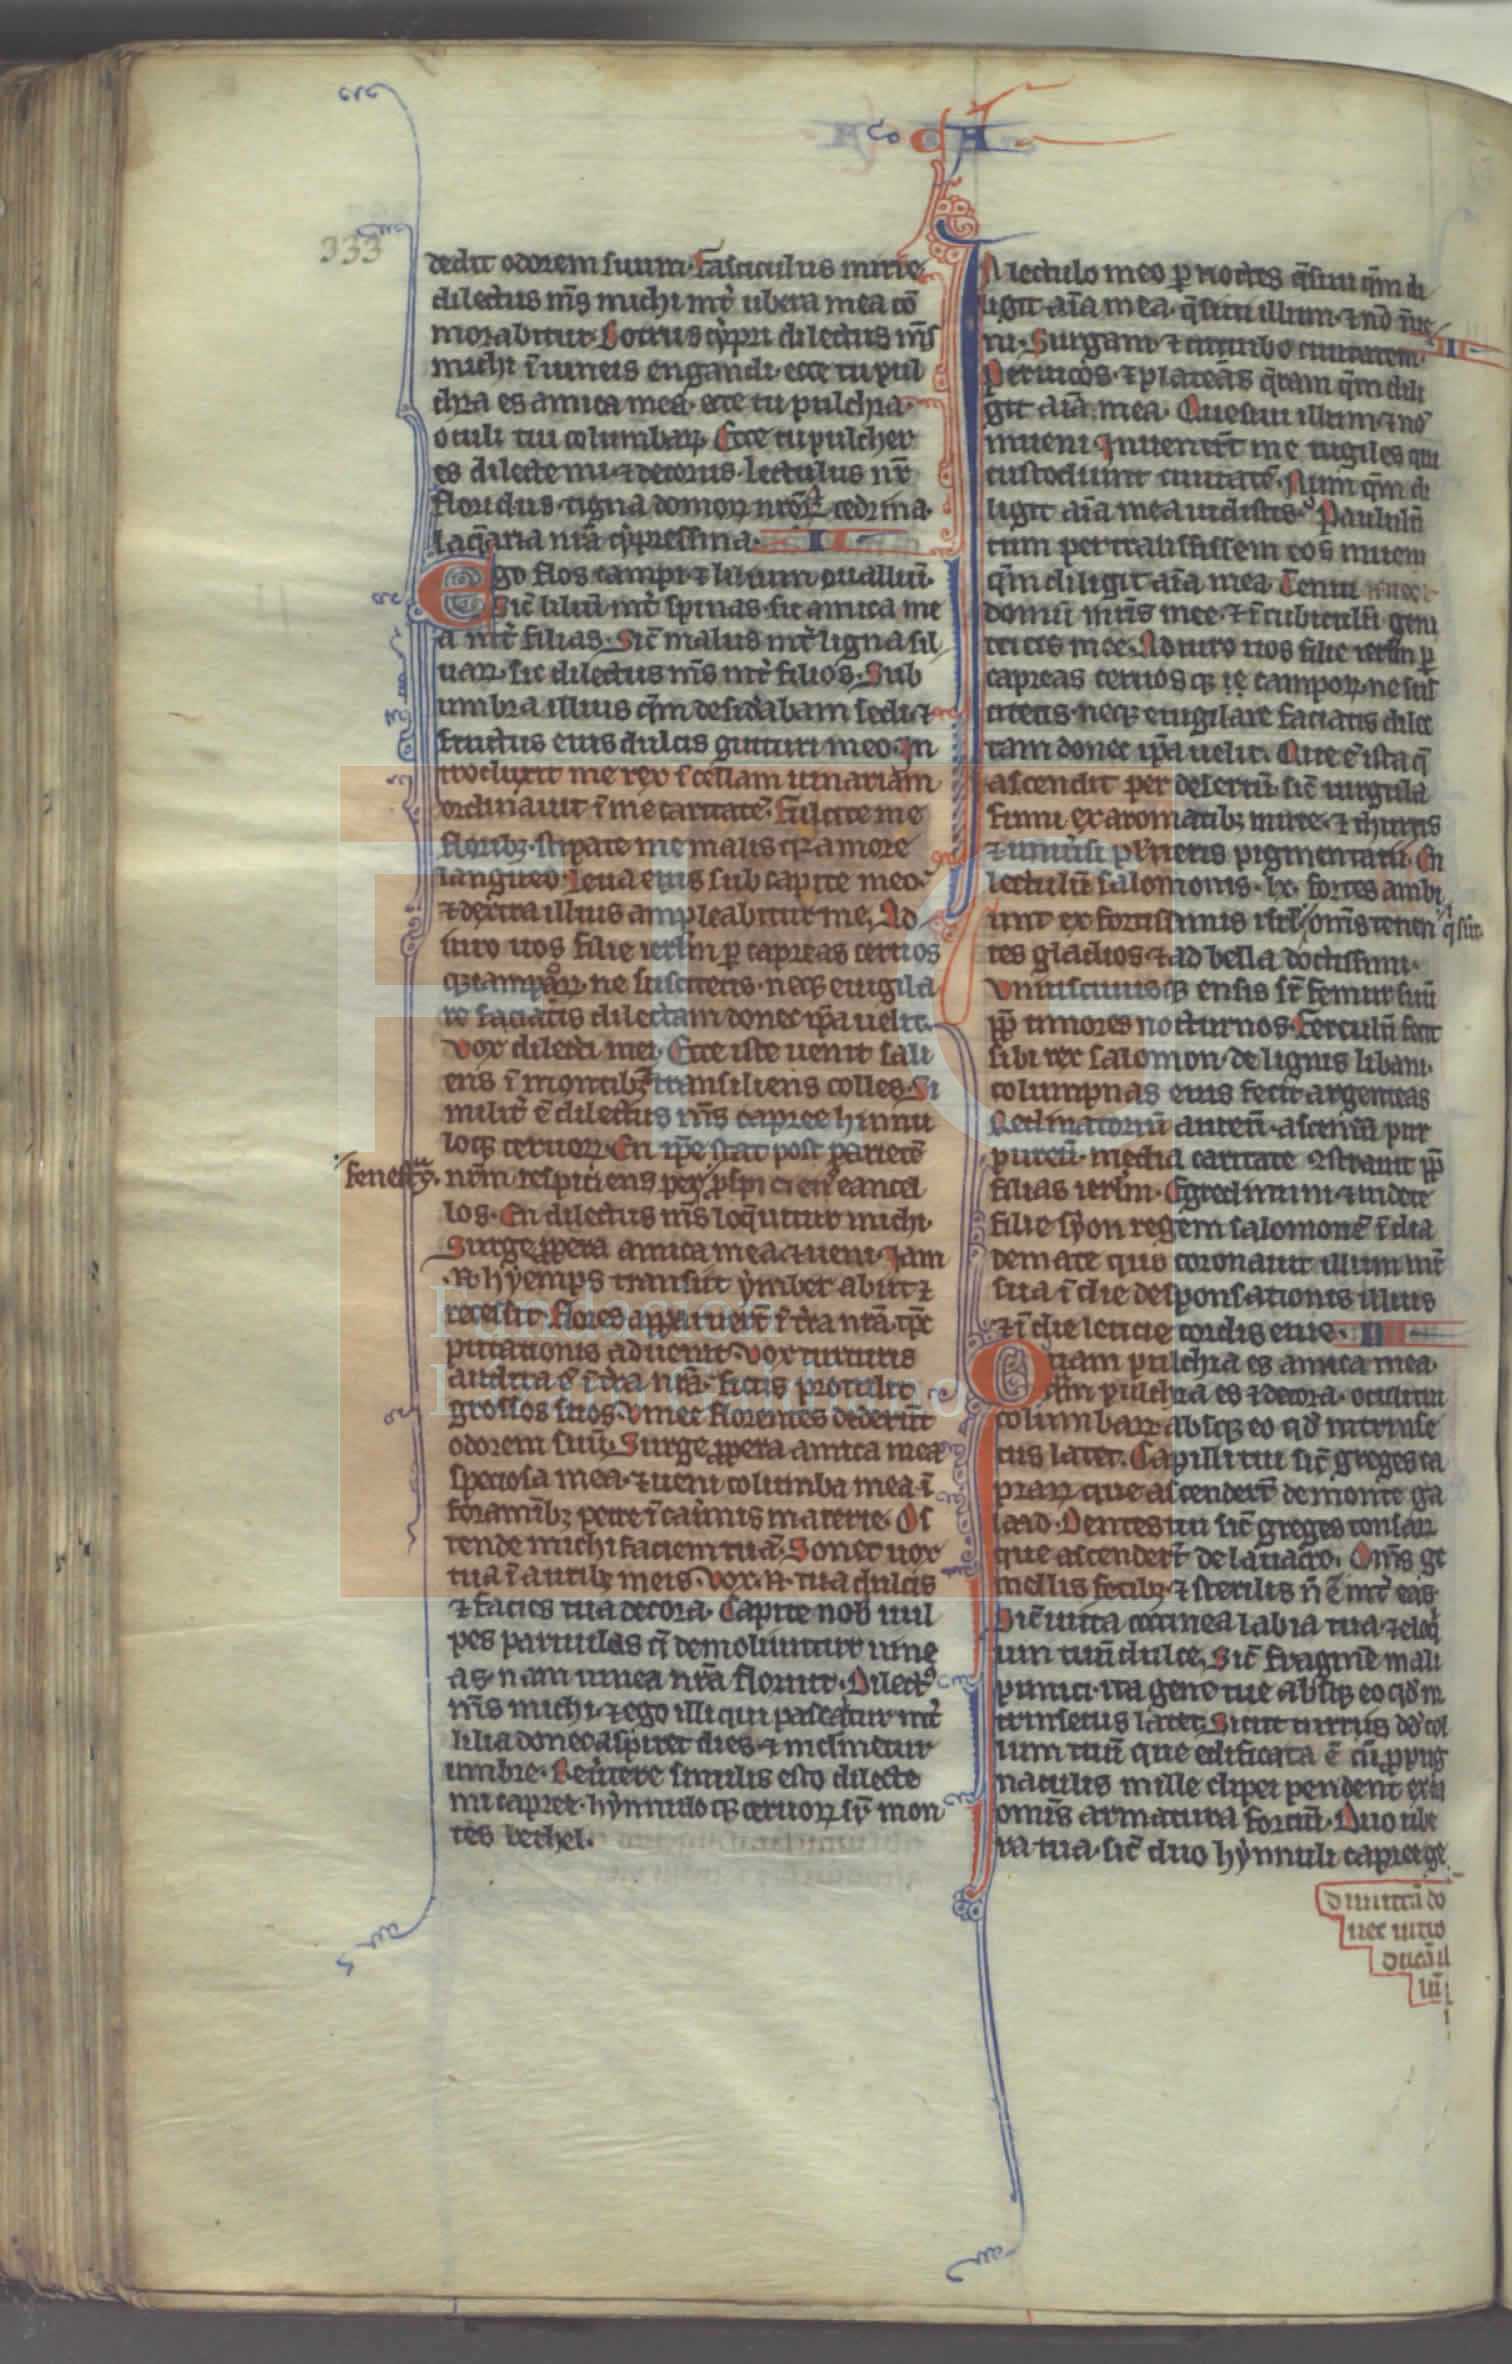 CA
333
dedit odorem suum. Fasciculus mirre
dilectus m̄s michi int͛ ubera mea cō
morabitur. Botrus cẏpri dilectus m̄s
michi ī uineis engandi. ecce tu pul
chra es amica mea. ecce tu pulchra.
oculi tui columbaꝝ. Ecce tu pulcher
es dilecte mi. ⁊ decorus. lectulus nr̄
floridus. tigna domoꝝ nr̄aꝝ cedrina.
laq̄aria nr̄a cẏpressina. II
Ego flos campi ⁊ lilium ɔualliū.
Sic̄ liliū int͛ spinas. sic amica me
a int͛ filias. Sic̄ malus int͛ ligna sil
uaꝝ. sic dilectus m̄s int͛ filios. Sub
umbra illius q̄m desid͛abam sedi. ⁊
fructus eius dulcis gutturi meo. In
troduxit me rex ī cellam uinariam
ordinauit ī me caritatē. Fulcite me
florib; stipate me malis q͛ amore
langueo. Leua eius sub capite meo.
⁊ dextra illius amplexabitur me. Ad
iuro uos filie ierlm̄ ꝑ capreas ceruos
q; campoꝝ. ne suscitetis. neq; euigila
re faciatis dilectam donec ip̄a uelit.
Vox dilecti mei. Ecce iste uenit sali
ens ī montib; transiliens colles. Si
milis ē dilectus m̄s capree hinnu
loq; ceruoꝝ. En ip̄e stat post parietē
fenestᷓs.
nr̄m respiciens per ꝓspiciens cancel
los. En dilectus m̄s loq̄tur michi.
Surge ꝓpera amica mea. ⁊ ueni. Iam
.n. hẏemps transiit ẏmber abiit ⁊
recessit. flores apparuert̄ ī t͛ra nr̄a. tp̄c
putationis aduenit. vox turturis
audita ē ī t͛ra nr̄a. ficus protulit
grossos suos. vinee florentes dederūt
odorem suū. Surge ꝓpera amica mea
speciosa mea. ⁊ ueni columba mea ī
foraminib; petre ī cau͛nis macerie. Os
tende michi faciem tuā. Sonet uox
tua ī aurib; meis. vox .n. tua dulcis
⁊ facies tua decora. Capite nob̄ uul
pes paruulas q̄ demoliuntur uine
as. nam uinea nr̄a floruit. Dilectꝰ
m̄s michi. ⁊ ego illi qui pascatur int͛
lilia donec aspiret dies. ⁊ inclinetur
umbre. Reu͛tere similis esto dilecte
mi capree. hẏnnuloq; ceruoꝝ sꝑ mon
tes bethel.
In lectulo meo ꝑ noctes q̄siui q̄m di
ligit aīa mea. q̄siui illum. ⁊ nō īue
ni. Surgam ⁊ circuibo ciuitatem.
III
Per uicos. ⁊ plateas q̄ram q̄m dili
git aīa mea. Quesiui illum. ⁊ nō
inueni. Inuenert̄ me uigiles qui
custodiunt ciuitatē. Num q̄m di
ligit aīa mea uidistis. Paululū
cum pertransissem eos inueni
q̄m diligit aīa mea. Tenui
domū mr̄is mee. ⁊ ī cubiculū geni
tricis mee. Adiuro uos filie ierlm̄ ꝑ
capreas ceruosq; campoꝝ. ne sus
citetis. neq; euigilare faciatis dilec
tam donec ip̄a uelit. Que ē ista q̄
ascendit per desertū. sic̄ uirgula
fumi ex aromatib; mirre. ⁊ thuris
⁊ uniu͛si pul͛ueris pigmentarii. En
lectulū salomonis. lx. fortes ambi
unt ex fortissimis isrl̄. om̄s tenen
q̄ sūt
tes gladios. ⁊ ad bella doctissimi.
Vniuscuiusq; ensis sr̄ femur suū
ꝓp̄ timores nocturnos. Ferculū fecit
sibi rex salomon. de lignis libani.
columpnas eius fecit argenteas
Reclinatoriū aureū. ascensū pur
pureū. media caritate ɔstrauit ꝓp̄
filias ierlm̄. Egredimini. ⁊ uidete
filie sẏon regem salomonē ī dia
demate quo coronauit illum mr̄
sua ī die desponsationis illius
⁊ ī die leticie cordis eius. IIII
Quam pulchra es amica mea.
q̄m pulchra es ⁊ decora. oculi tui
columbaꝝ. absq; eo qd̄ intrinse
cus latet. Capilli tui sic̄ greges ca
praꝝ que ascendert̄ de monte ga
laad. Dentes tui sic̄ greges tonsaꝝ
que ascendert̄ de lauacro. Om̄s ge
mellis fetib; ⁊ sterilis n̄ ē int͛ eas.
Sic̄ uitta coccinea labia tua. ⁊ eloq̇
um tuū dulce. Sic̄ fragmē mali
punici. ita gene tue absq; eo qd̄ in
trinsecus latet. Sicut turris dd̄ col
lum tuū que edificata ē cū ꝓpug
naculis mille clipei pendent ex ea
omis armatura fortiū. Duo ube
ra tua. sic̄ duo hẏnnuli capree ge
dimittā do
nec intro
ducā il
lū ī
Fundación
Lázaro Galdiano